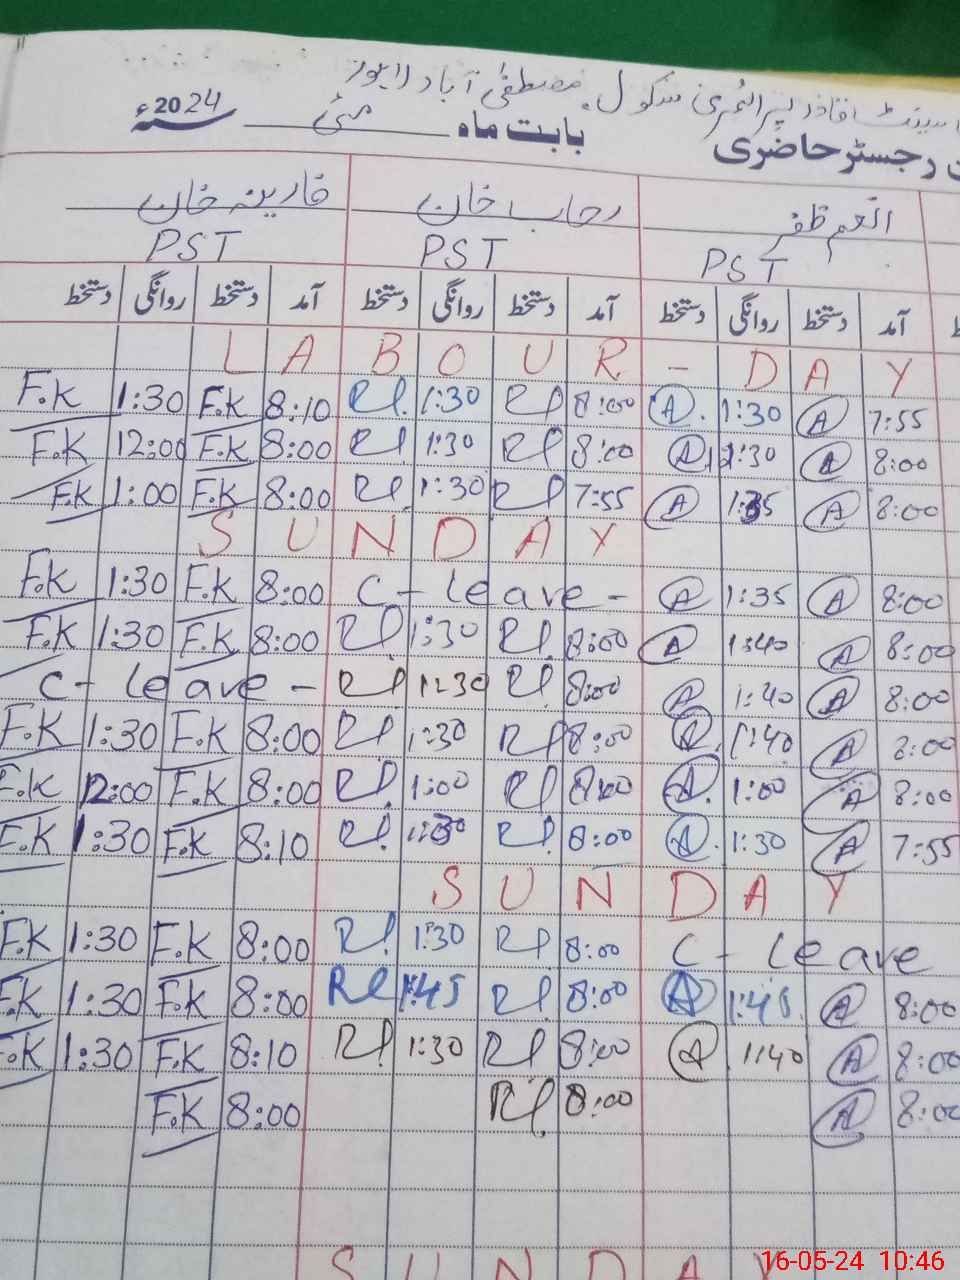 پرائمری سکول مصطفیٰ آباد لاہور
رجسٹر حاضری بابت ماہ مئی 2024ء
انعم ظفر رحاب خان فارینہ خان
PST PST PST
آمد دستخط روانگی دستخط آمد دستخط روانگی دستخط آمد دستخط روانگی دستخط
LABOUR - DAY
F.K 1:30 F.K 8:10 RP. 1:30 RP 8:00 A. 1:30 A 7:55
F.K 12:00 F.K 8:00 RP 1:30 RP 8:00 A 1:30 A 8:00
F.K 1:00 F.K 8:00 RP 1:30 RP 7:55 A 1:35 A 8:00
SUNDAY
F.K 1:30 F.K 8:00 C - leave - A 1:35 A 8:00
F.K 1:30 F.K 8:00 RP 1:30 RP. 8:00 A 1:40 A 8:00
C - leave - RP 1:30 RP 8:00 A 1:40 A 8:00
F.K 1:30 F.K 8:00 RP 1:30 RP 8:00 A. 1:40 A 8:00
F.K 12:00 F.K 8:00 RP. 1:00 RP 8:00 A. 1:00 A 8:00
F.K 1:30 F.K 8:10 RP. 1:30 RP. 8:00 A. 1:30 A 7:55
SUNDAY
F.K 1:30 F.K 8:00 RP. 1:30 RP 8:00 C - leave
F.K 1:30 F.K 8:00 RP 1:45 RP. 8:00 A 1:45. A 8:00
F.K 1:30 F.K 8:10 RP. 1:30 RP 8:00 A 1:40 A 8:00
F.K 8:00 RP. 8:00 A 8:00
SUNDAY
16-05-24 10:46